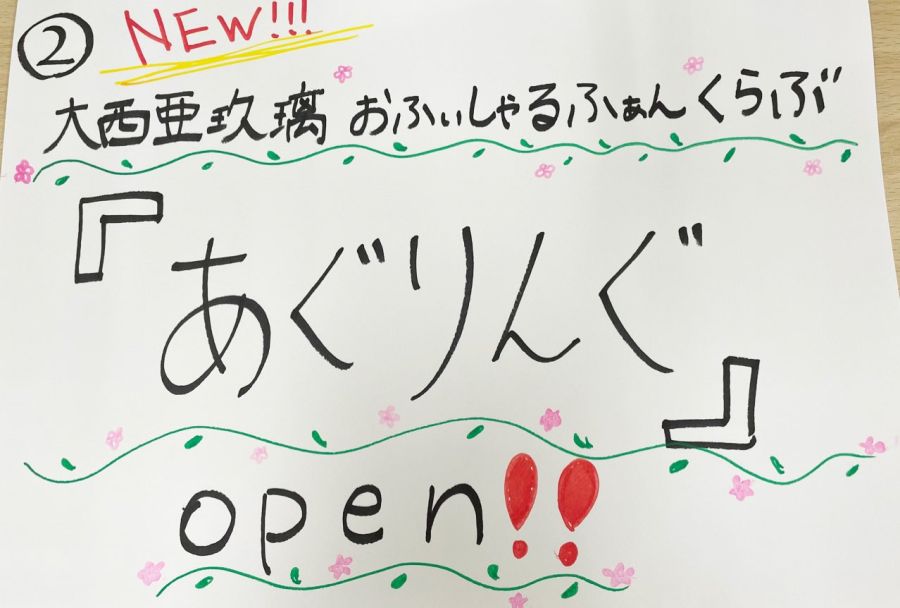 ② NEW!!!
大西亜玖璃 おふぃしゃるふぁんくらぶ
『あぐりんぐ』
open!!